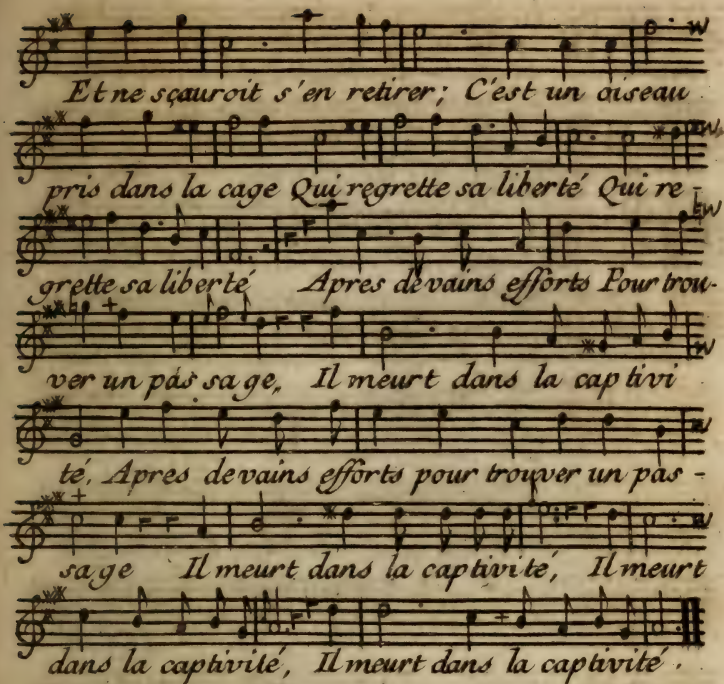 Et ne sçauroit s'en retirer; C'est un oiseau
pris dans la cage Qui regrette sa liberté Qui re-
grette sa liberté Apres de vains efforts Pour trou-
ver un pas sage, Il meurt dans la captivi
té, Apres de vains efforts pour trouver un pas-
sage Il meurt dans la captivité, Il meurt
dans la captivité, Il meurt dans la captivité.